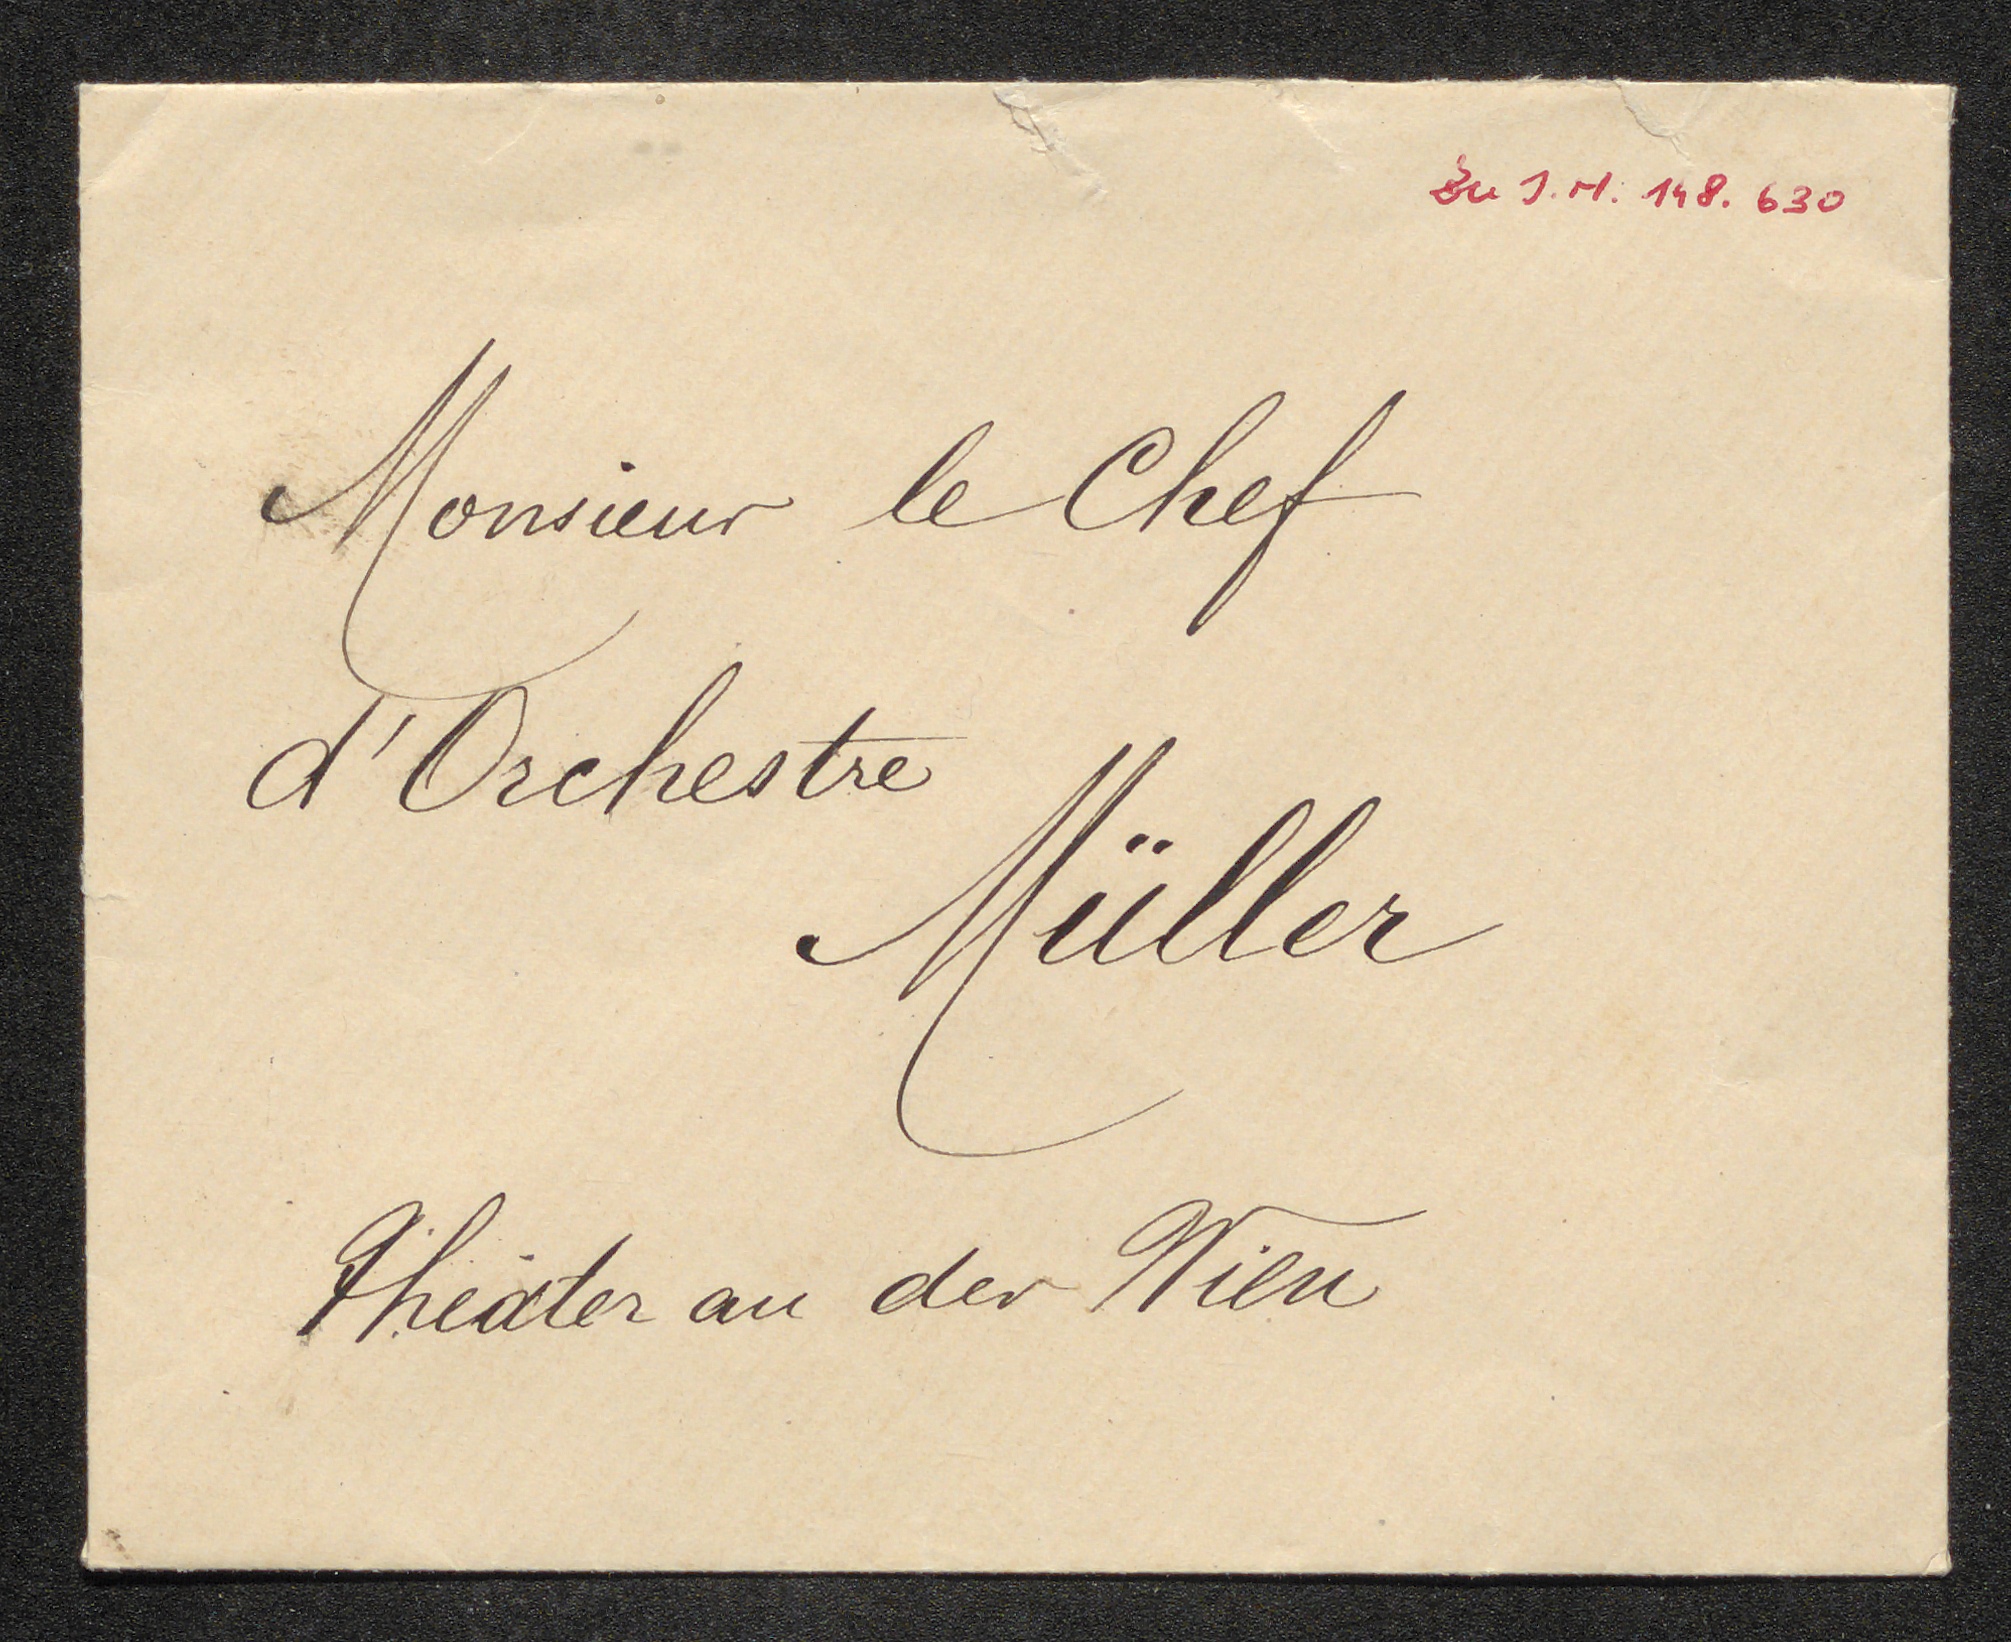 Zu J.N. 148.630
Monsieur le Chef
d'Orchestre
Müller
Theater an der Wien